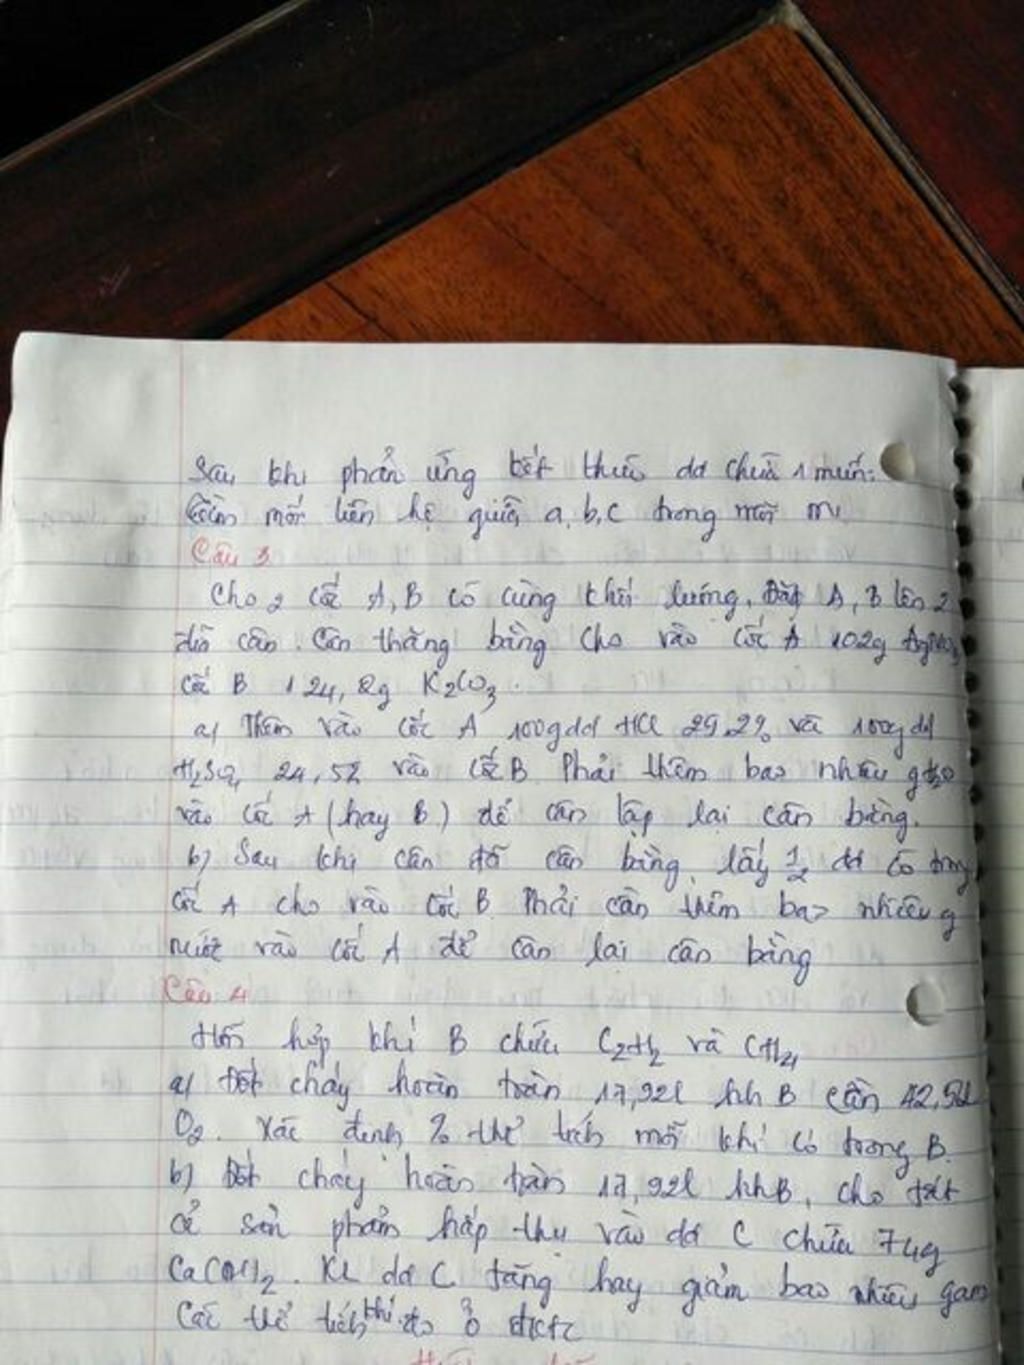 Sau khi phản ứng kết thúc dd chứa 1 muối:
tìm mối liên hệ giữa a, b, c trong mỗi
Câu 3
Cho 2 cốc A, B có cùng khối lượng. Đặt A, B lên 2
đĩa cân. Cân thăng bằng cho vào cốc A 102g AgNO3
cốc B 124,2g K2CO3.
a) Thêm vào cốc A 100g dd HCl 29,2% và 100g dd
H2SO4 24,5% vào cốc B Phải thêm bao nhiêu g H2O
vào cốc A (hay B) để cân lập lại cân bằng.
b) Sau khi cân đã cân bằng, lấy 1/2 dd có trong
cốc A cho vào cốc B. Phải cần thêm bao nhiêu g
nước vào cốc A để cân lại cân bằng
Câu 4
Hỗn hợp khí B chứa C2H2 và CH4
a) Đốt cháy hoàn toàn 17,92l hh B cần 42,56l
O2. Xác định % thể tích mỗi khí có trong B.
b) Đốt cháy hoàn toàn 17,92l hh B, cho tất
cả sản phẩm hấp thụ vào dd C chứa 74g
Ca(OH)2. KL dd C tăng hay giảm bao nhiêu gam
Các thể tích khí đo ở đktc